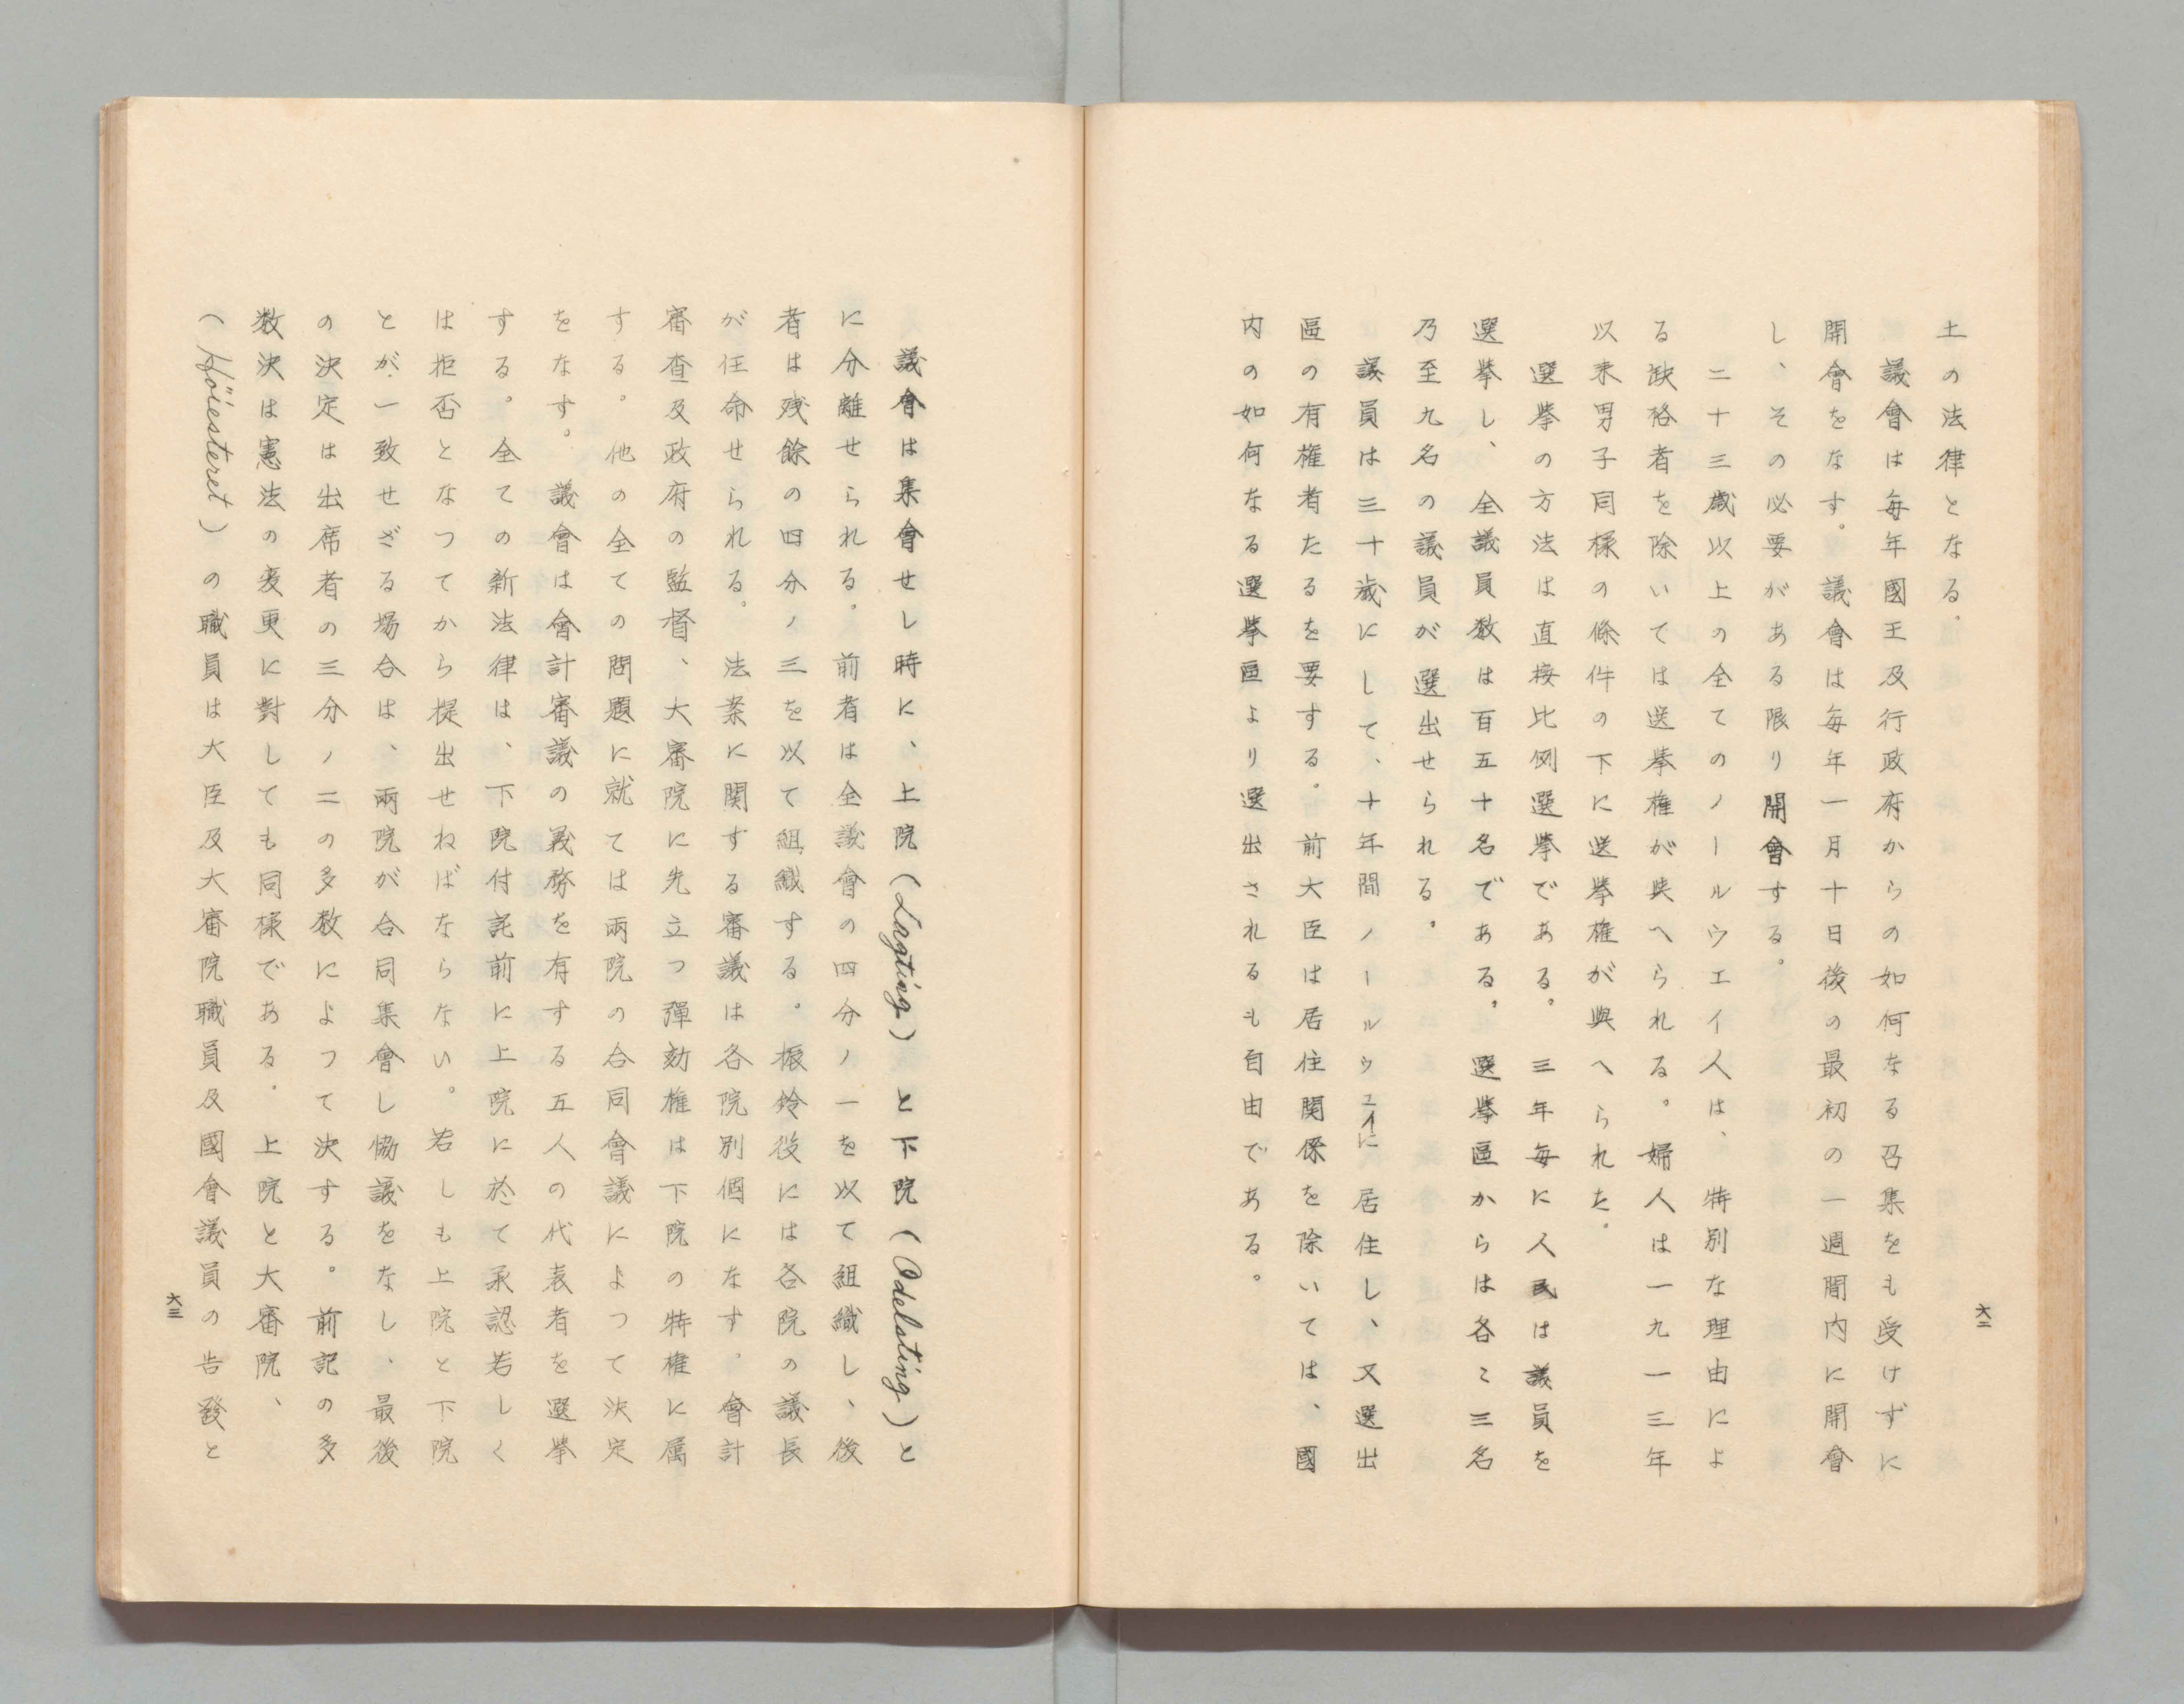 土の法律となる。
議會は毎年國王及行政府からの如何なる召集をも受けずに
開會をなす。議會は毎年一月十日後の最初の一週間内に開會
し、その必要がある限り開會する。
二十三歳以上の全てのノールウエイ人は、特別な理由によ
る缺格者を除いては選挙権が與へられる。婦人は一九一三年
以来男子同様の條件の下に選挙権が與へられた。
選挙の方法は直接比例選挙である。三年毎に人民は議員を
選挙し、全議員数は百五十名である。選挙區からは各〻三名
乃至九名の議員が選出せられる。
議員は三十歳にして、十年間ノールウエイに居住し、又選出
區の有権者たるを要する。前大臣は居住関係を除いては、國
内の如何なる選挙區より選出されるも自由である。
六二
議會は集會せし時に、上院(Lagting)と下院(Odelsting)と
に分離せられる。前者は全議會の四分ノ一を以て組織し、後
者は残餘の四分ノ三を以て組織する。振鈴役には各院の議長
が任命せられる。法案に関する審議は各院別個になす。會計
審査及政府の監督、大審院に先立つ彈劾権は下院の特権に属
する。他の全ての問題に就ては両院の合同會議によつて決定
をなす。議會は會計審議の義務を有する五人の代表者を選挙
する。全ての新法律は、下院付託前に上院に於て承認若しく
は拒否となつてから提出せねばならない。若しも上院と下院
とが一致せざる場合は、両院が合同集會し協議をなし、最後
の決定は出席者の三分ノ二の多数によつて決する。前記の多
数決は憲法の変更に對しても同様である。上院と大審院、
(Höiesteret)の職員は大臣及大審院職員及國會議員の告發と
六三